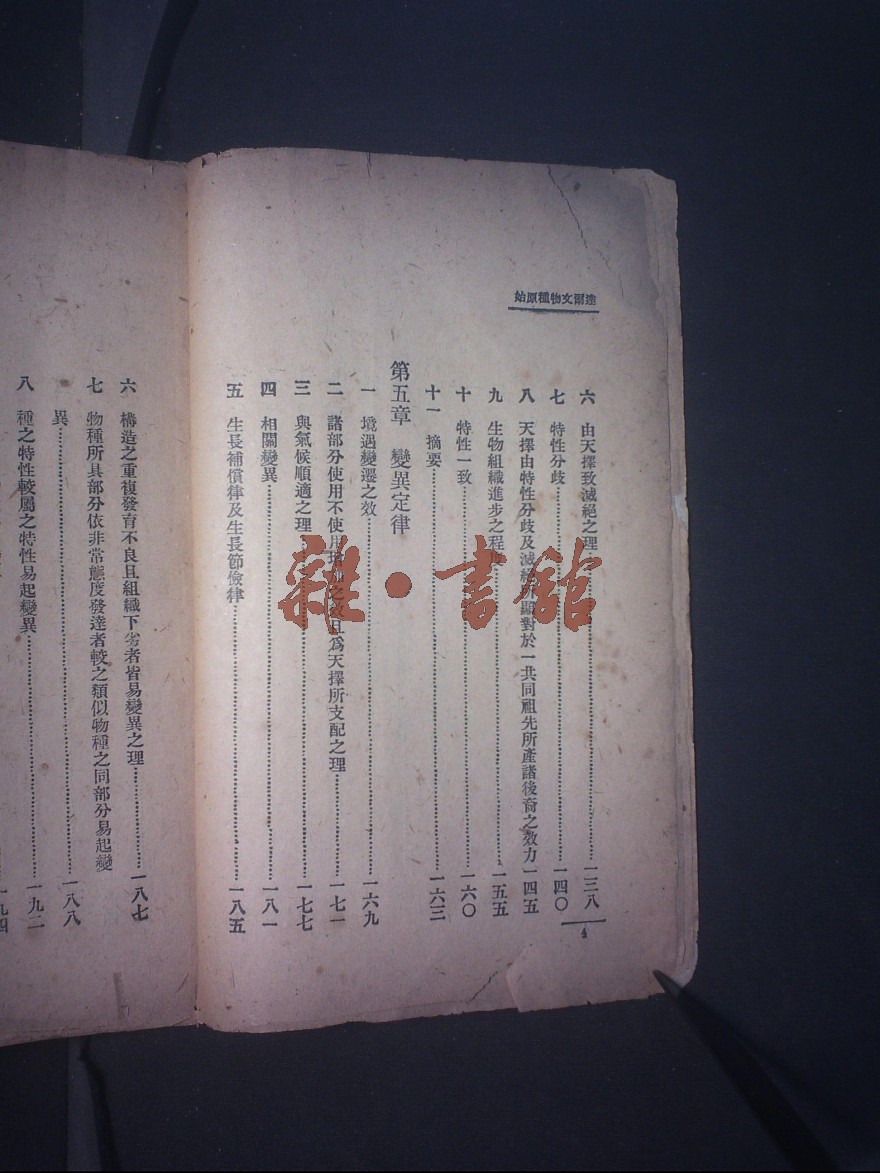 達爾文物種原始
六 由天擇致滅絕之理 一三八
七 特性分歧 一四〇
八 天擇由特性分歧及滅絕所顯對於一共同祖先所產諸後裔之效力 一四五
九 生物組織進步之程度 一五五
十 特性一致 一六〇
十一 摘要 一六三
第五章 變異定律
一 境遇變遷之效 一六九
二 諸部分使用不使用 之效且爲天擇所支配之理 一七一
三 與氣候順適之理 一七七
四 相關變異 一八一
五 生長補償律及生長節儉律 一八五
4
六 構造之重複發育不良且組織下劣者皆易變異之理 一八七
七 物種所具部分依非常態度發達者較之類似物種之同部分易起變
異 一八八
八 種之特性較屬之特性易起變異 一九二
一九四
雜·書館